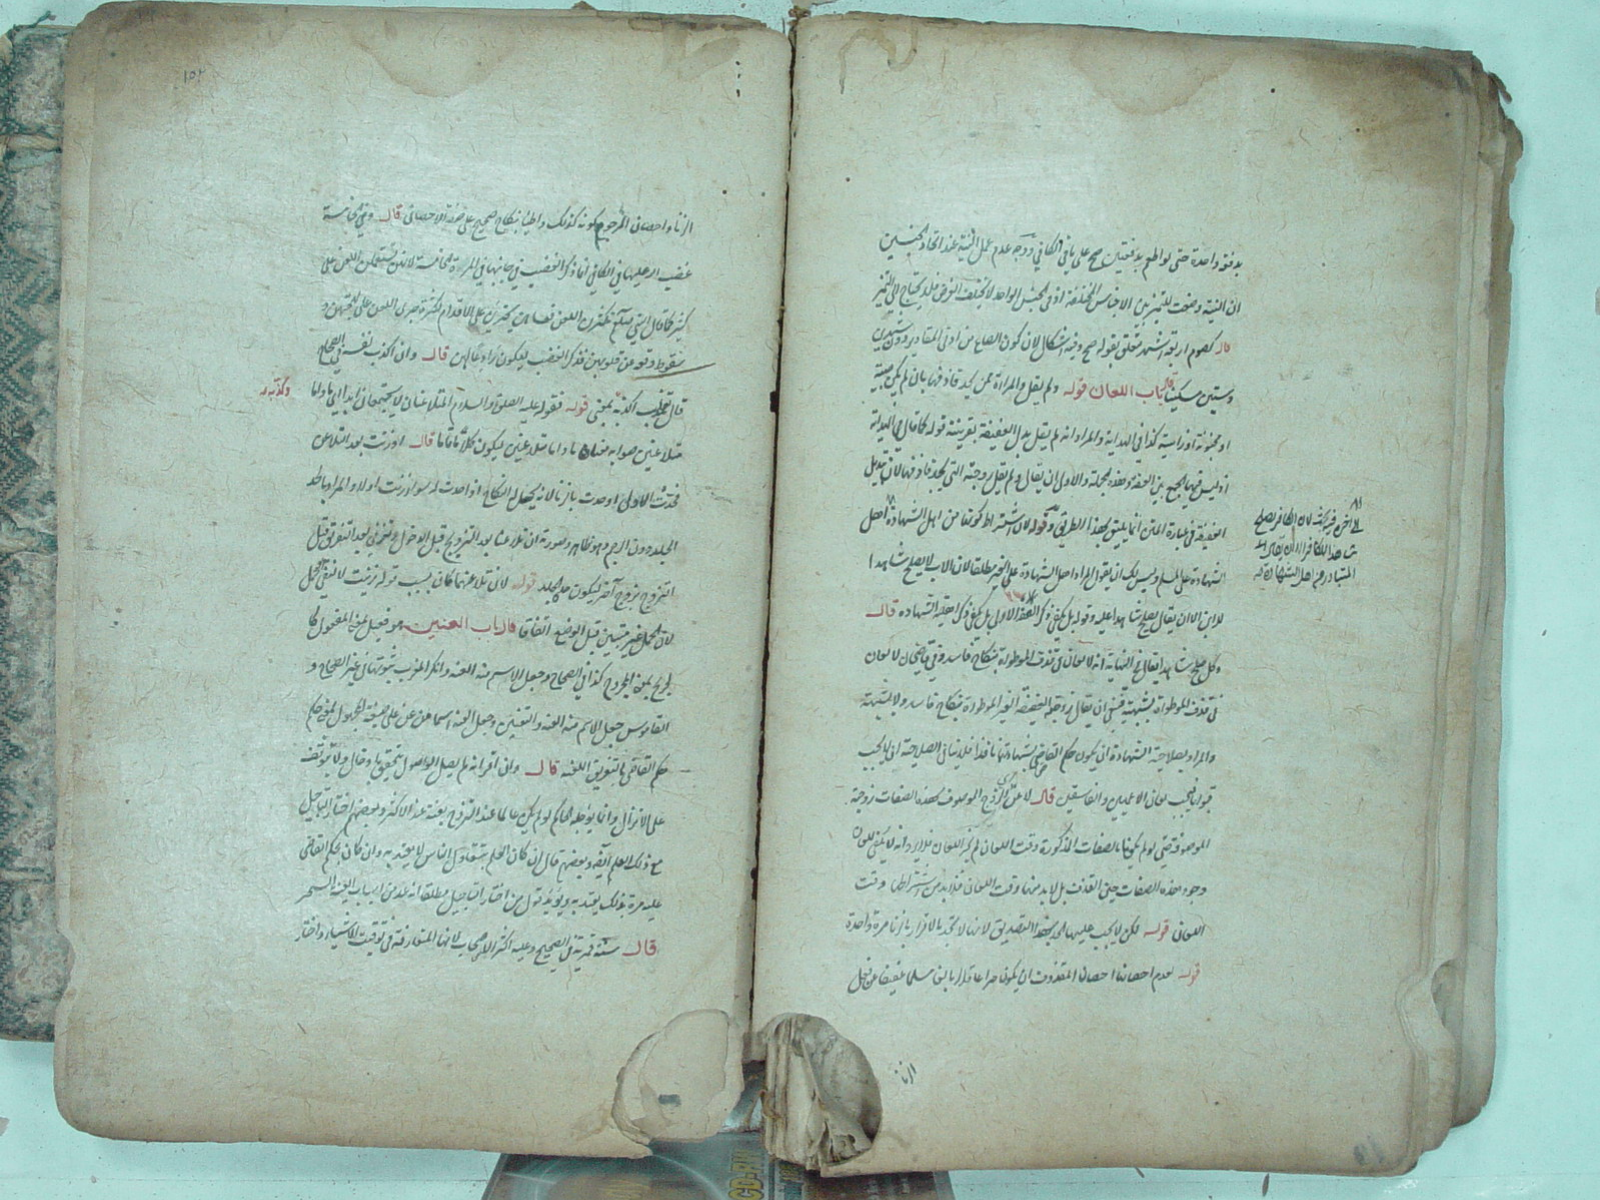 بدفعة واحدة حتى لو اطعم بدفعتين صح على ما في الكافي ووجه عدم عمل النية عند اتحاد الجنسين
ان النية وضعت للتمييز بين الاجناس المختلفة اذ في الجنس الواحد لا يختلف الغرض فلا يحتاج الى التمييز
قال كصوم اربعة اشهر متعلق بقوله صح وفيه اشكال لان كون الصاع من ادنى المقادير ودون شهرين
وستين مسكينا قال باب اللعان قوله ولم يقل والمراة ممن يحد قاذفها بان لم يكن صبية
او مجنونة او زانية كذا في الهداية والمراد انه لم يقل بدل العفيفة بقرينة قوله كما قال في الهداية
اذ ليس فيها الجمع بين العفة وهذه الجملة والاولى ان يقال ولم يقل زوجته التي يحد قاذفها لان تبديل
العفيفة في عبارة المتن انما يليق بهذا الطريق قوله لان اشتراط كونها من اهل الشهادة اصل
الشهادة على المسلم وليس لك ان تقول المراد اصل الشهادة على الغير مطلقا لان الاب لا يصلح شاهدا
للابن الا ان يقال يصلح شاهدا عليه وقوله بل يكفي ذكر العفة الاولى بل يكفي ذكر اهلية الشهادة قال
وكل صلح شاهدا يقال في النهاية انه لا لعان في قذف الموطوءة بنكاح فاسد وفي قاضيخان لا لعان
في قذف الموطوءة بشبهة فينبغي ان يقال زوجته العفيفة الغير الموطوءة بنكاح فاسد ولا بشبهة
والمراد بصلاحية الشهادة ان يكون حكم القاضي بشهادتها نافذا فلا ينافي الصلاحية ان لا يجب
قبولها فيجب لعان الاعميين والفاسقين قال لاعن اي الزوج الموصوف بهذه الصفات زوجته
الموصوفة حتى لو لم يكونا بالصفات المذكورة وقت اللعان لم يجز اللعان فلا يرد انه لا يكفي للعان
وجود هذه الصفات حين القذف بل لا بد منها وقت اللعان فلا بد من اشتراطها وقت
اللعان قوله لكن لا يجب عليها الحد بهذا التصديق لانها لا تحد بالاقرار بالزنا مرة واحدة
قوله لعدم احصانها احصان المقذوف ان يكون حرا عاقلا بالغا مسلما عفيفا عن فعل
الزنا
الى اخره فيه بحث لان الكافر يصلح
شاهدا للكافر الا ان يقال ان
المتبادر من اهل الشهادة
الزنا واحصان المرجوم كونه كذلك واطيا بنكاح صحيح على صفة الاحصان قال وفي الخامسة
غضب الله عليها في الكافي انما ذكر الغضب في جانبها في المرة الخامسة لانهن يستعملن اللعن على
كثير كما قال النبي صلعم تكثرن اللعن فعساهن يجترئن على الاقدام لكثرة جرى اللعن على السنتهن و
سقوط وقعه من قلوبهن فذكر الغضب ليكون رادعا لهن قال وان اكذب نفسه في الصحاح
قال ثعلب اكذبه بمعنى قوله فقوله عليه الصلوة والسلام المتلاعنان لا يجتمعان ابدا اي ما داما
وكذبه
متلاعنين صوابه معناه ما داما متلاعنين ليكون كلاما تاما قال او زنت بعد التلاعن
فحدت الاولى او حدت بالزنا لانه يحل له النكاح اذا حدت له سواء زنت اولا والمراد بالحد
الجلد دون الرجم وهو ظاهر وصورته ان تلاعنا بعد التزويج قبل الدخول وتزني بعد التفريق قبل
التزوج بزوج آخر ليكون حده الجلد قوله لان تلاعنهما كان بسبب قوله زنيت لا نفي الحمل
لان الحمل غير متيقن قبل الوضع اتفاقا قال باب العنين هو فعيل بمعنى المفعول كا
لجريح بمعنى المجروح كذا في الصحاح وجعل الاسم منه العنة وانكر المغرب ثبوتها في غير الصحاح و
القاموس جعل الاسم منه العنة والتعنين وجعل العنة اسما من عن على صيغة المجهول بمعنى حكم
حكم القاضي بالتفريق اللغه قال وان اقر انه لم يصل الوصول يتحقق با وقال ولا يتوقف
على الانزال وانما يؤجله الحاكم لو لم يكن عالما عند التزوج بعنته عند الاكثر وبعضهم اختار التاجيل
مع ذلك العلم ايضا وبعضهم قال ان كان العلم بتقاول الناس لا يعتد به وان كان بحكم القاضي
عليه مرة بذلك يعتد به ويؤيد قول من اختار التاجيل مطلقا انه عد من اسباب العنة السحر
قال سنة قمرية في الصحيح وعليه اكثر الاصحاب لانها المتعارفة في توقيت الاشياء واختار